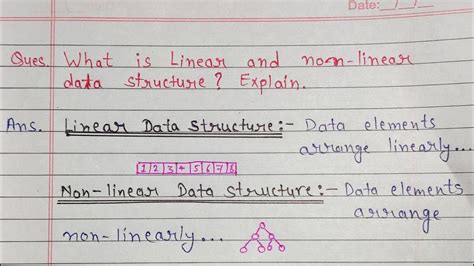 Date: __/__/__
Ques. What is Linear and non-linear
data structure? Explain.
Ans. Linear Data Structure:- Data elements
arrange linearly...
1 2 3 4 5 6 7 8
Non-linear Data Structure:- Data elements
arrange
non-linearly...